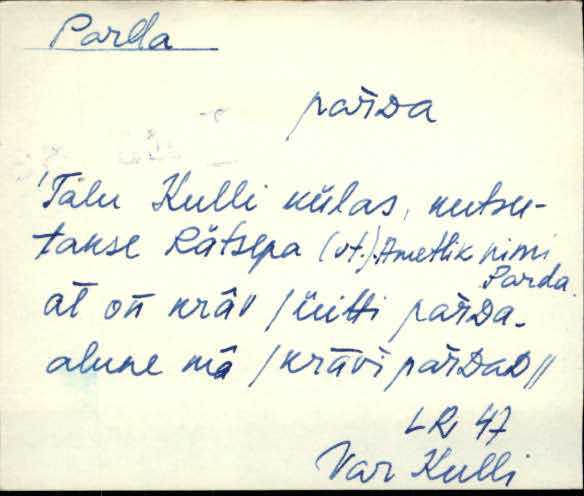 Parda
pařDa
'Talu Kulli külas, kutsu-
takse Rätsepa (vt.). Ametlik nimi
Parda.
at oñ krāv / üitti pařDa-
alune mā / krāvi pařDaD //
LR, 47
Var Kulli